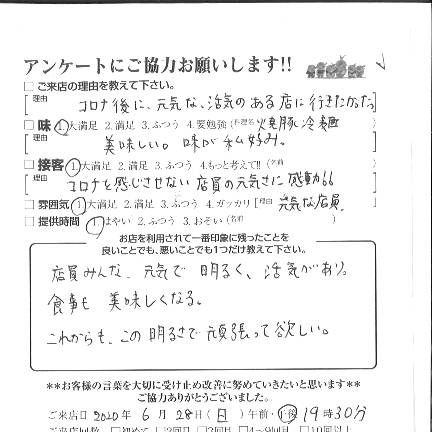 アンケートにご協力お願いします!!
□ご来店の理由を教えて下さい。
[理由 コロナ後に、元気な、活気のある店に行きたかった]
□味 ①.大満足 2.満足 3.ふつう 4.要勉強 (料理名 焼豚冷麺
[理由 美味しい。味が私好み。]
□接客 ①.大満足 2.満足 3.ふつう 4.もっと考えて!! (名前
[理由 コロナを感じさせない店員の元気さに感動
□雰囲気 ①.大満足 2.満足 3.ふつう 4.ガッカリ [理由 元気な店員
□提供時間 ①.はやい 2.ふつう 3.おそい (名前 )
お店を利用されて一番印象に残ったことを
良いことでも、悪いことでも1つだけ教えて下さい。
店員みんな、元気で明るく、活気があり。
食事も美味しくなる。
これからも、この明るさで頑張って欲しい。
**お客様の言葉を大切に受け止め改善に努めていきたいと思います**
ご協力ありがとうございました。
ご来店日 2020年 6月 28日(日) 午前・午後 19時30分
ご来店回数 □初めて □2回目 □3回目 □4～9回目 □10回以上